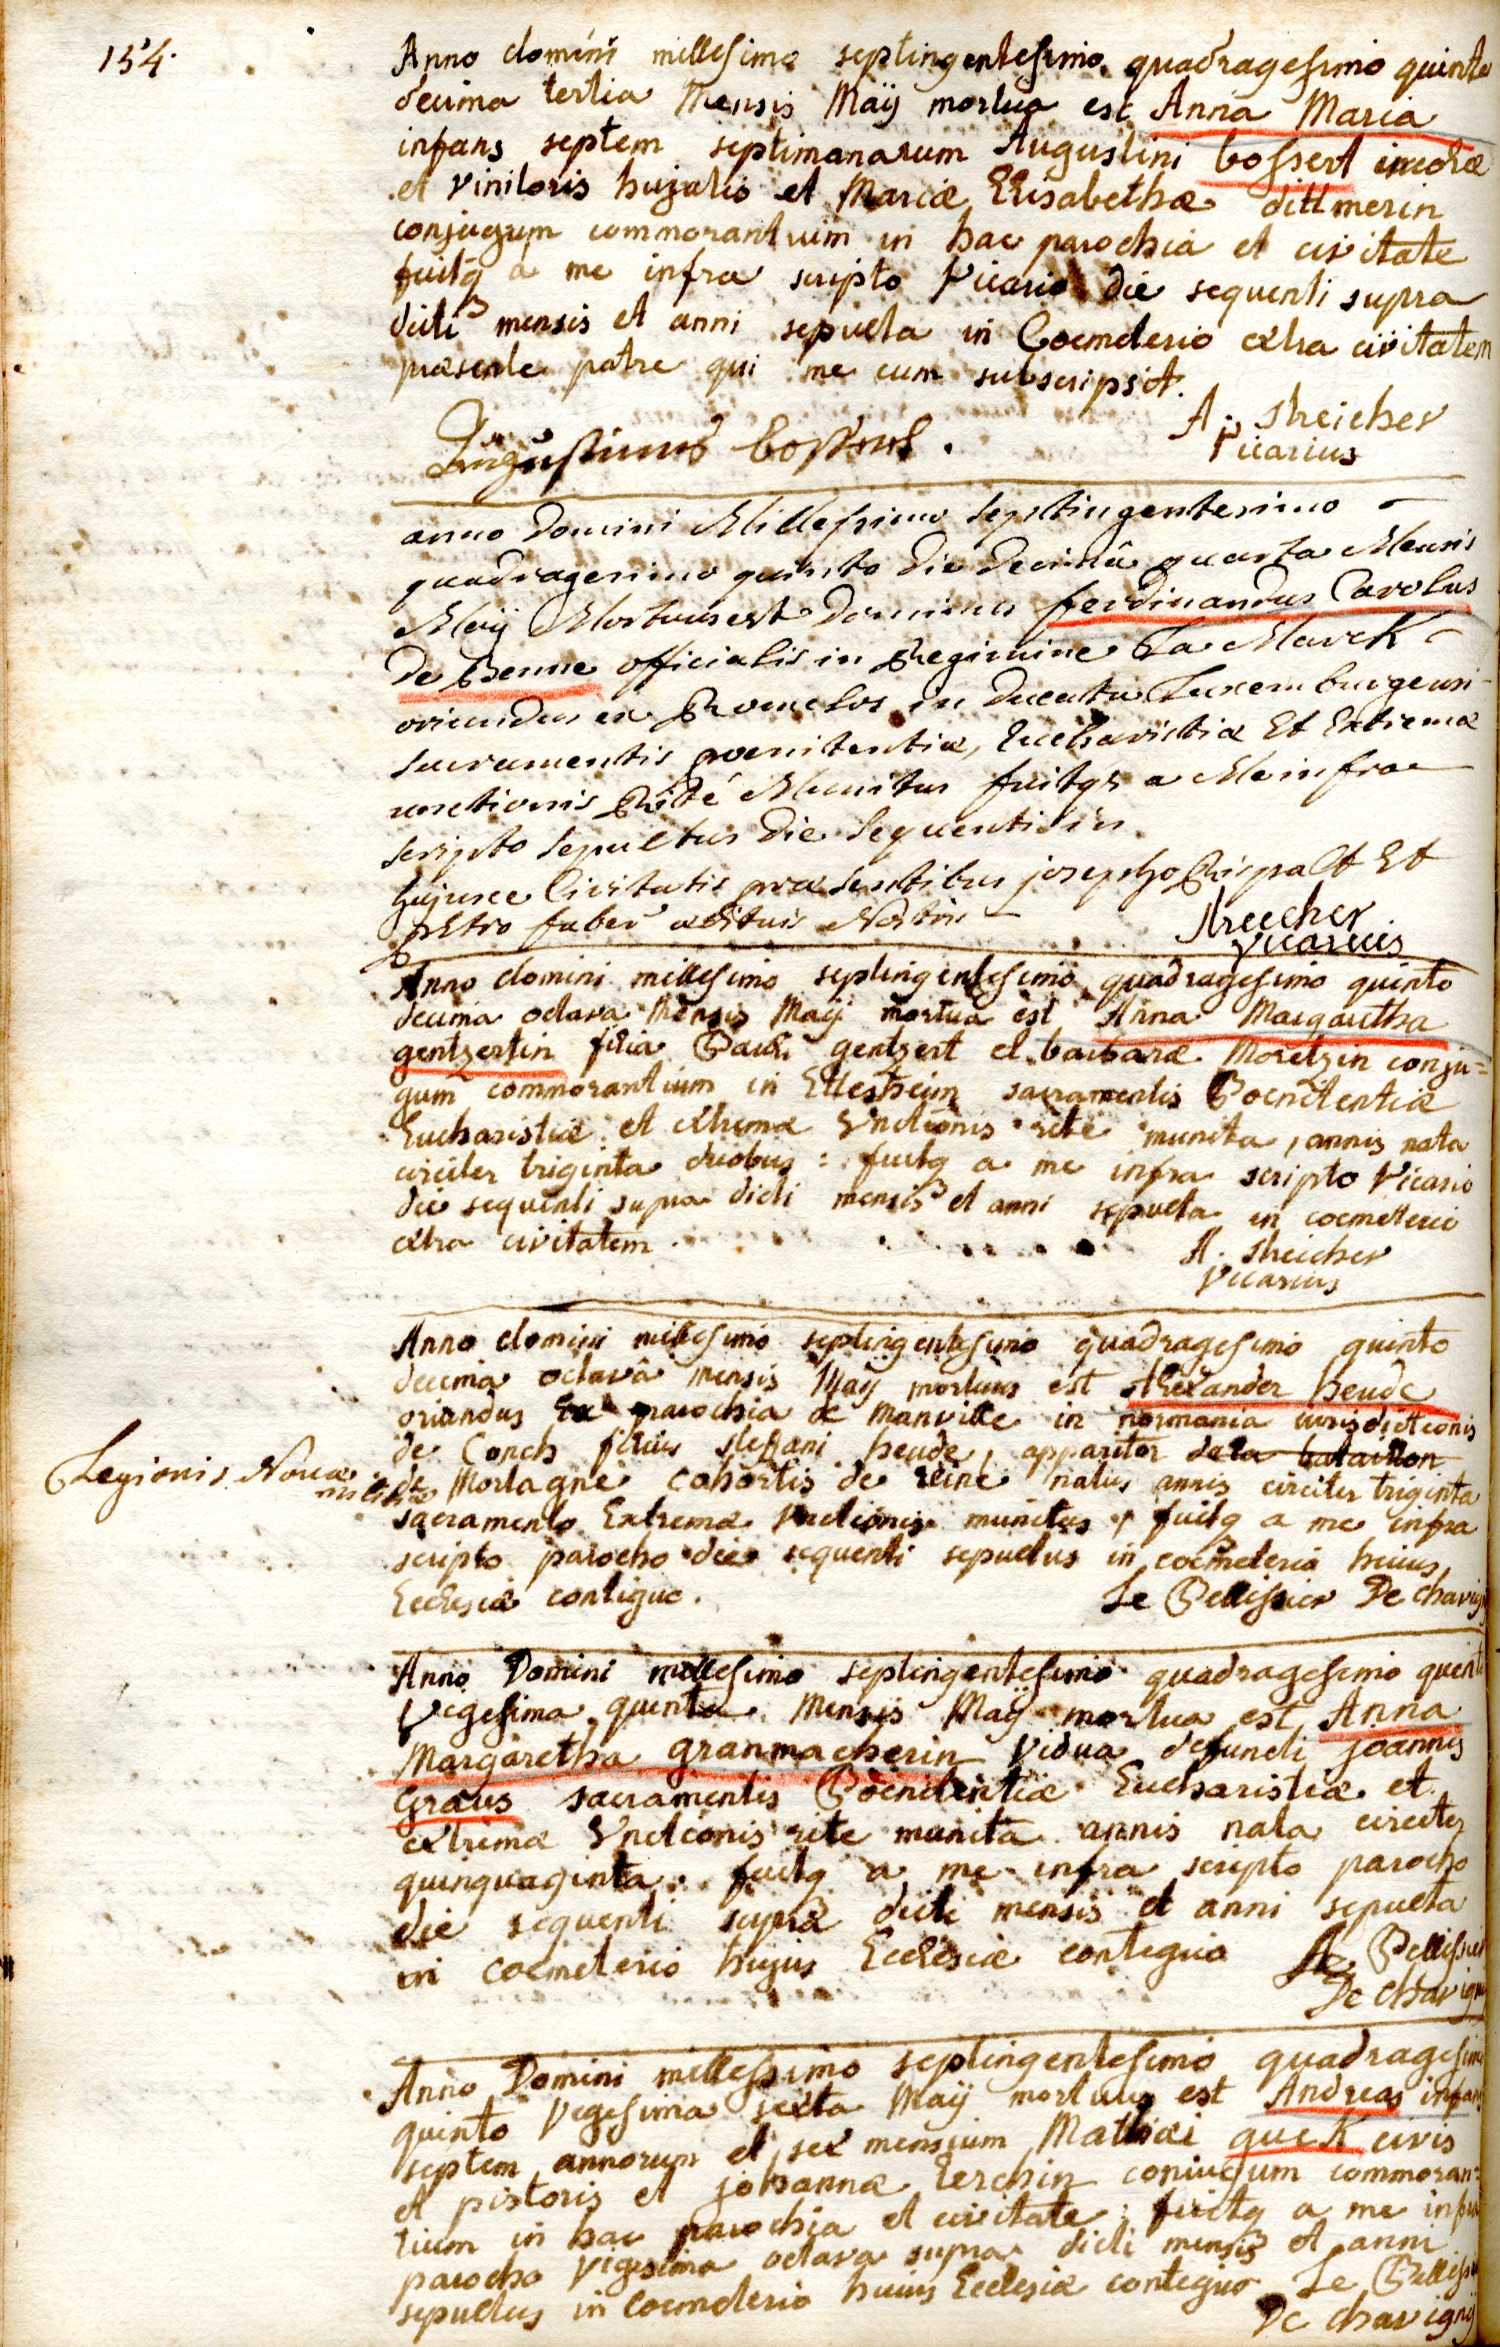 154.
Anno domini millesimo septingentesimo quadragesimo quinto
decima tertia Mensis Maÿ mortua est Anna Maria
infans septem septimanarum Augustini bossert incolæ
et vinitoris hujatis et Mariæ Elisabethæ dittmerin
conjugum commorantium in hac parochia et civitate
fuitq a me infra scripto Vicario die sequenti supra
dicti mensis et anni sepulta in Coemeterio extra civitatem
præsente patre qui me cum subscripsit.
A. Streicher
Vicarius
Augustinus bossert.
anno Domini Millesimo septingentesimo
quadragesimo quinto die decimâ quarta Mensis
Maÿ Mortuus est Dominus ferdinandus Carolus
De Benne officialis in Regimine La Marck
oriundus ex in ducatu Luxemburgensi
sacramentis poenitentiæ, Eucharistiæ Et Extremæ
unctionis Rité Munitus fuitq a Me infra
scripto sepultus die sequenti in
hujusce Civitatis præsentibus josepho Rispalt Et
petro faber ædituis Nostris
Streicher
Vicarius
Anno domini millesimo septingentesimo quadragesimo quinto
decima octava Mensis Maÿ mortua est Anna Margaretha
gentzertin filia Pauli gentzert et barbaræ Moretzin conju=
gum commorantium in Ettesheim sacramentis Poenitentiæ
Eucharistiæ et extremæ Unctionis rite munita, annis nata
circiter triginta duobus: fuitq a me infra scripto Vicario
die sequenti supra dicti mensis et anni sepulta in coemeterio
extra civitatem.
A. Streicher
Vicarius
Anno domini millesimo septingentesimo quadragesimo quinto
decima octavâ mensis Maÿ mortuus est Alexander heude
oriundus Ex parochia de Manville in normania iurisdictionis
de Conch filius steffani heude, apparitor de la bataillon
Legionis Novæ
militiæ
de Mortagne cohortis de reine natus annis circiter triginta
sacramento Extremæ Unctionis munitus, fuitq a me infra
scripto parocho die sequenti sepultus in coemeterio huius
Ecclesiæ contiguo.
Le Pellissier De chavigny
Anno Domini millesimo septingentesimo quadragesimo quinto
Vigesima quinta Mensis Maÿ mortua est Anna
Margaretha granmacherin Vidua defuncti joannis
Graus sacramentis Poenitentiæ Eucharistiæ et
extremæ Unctionis rite munita annis nata circiter
quinquaginta. fuitq a me infra scripto parocho
die sequenti supra dicti mensis et anni sepulta
in coemeterio hujus Ecclesiæ contiguo
Le Pellissier
De chavigny
Anno Domini millessimo septingentesimo quadragesimo
quinto Vigesima sexta Maÿ mortuus est Andreas infans
septem annorum et sex mensium Mathæi quek civis
et pistoris et johannæ Lerchin coniugum commoran=
tium in hac parochia et civitate: fuitq a me infra
parocho Vigesima octava supra dicti mensis et anni
sepultus in Coemeterio huius Ecclesiæ contiguo
Le Pellissier
De chavigny